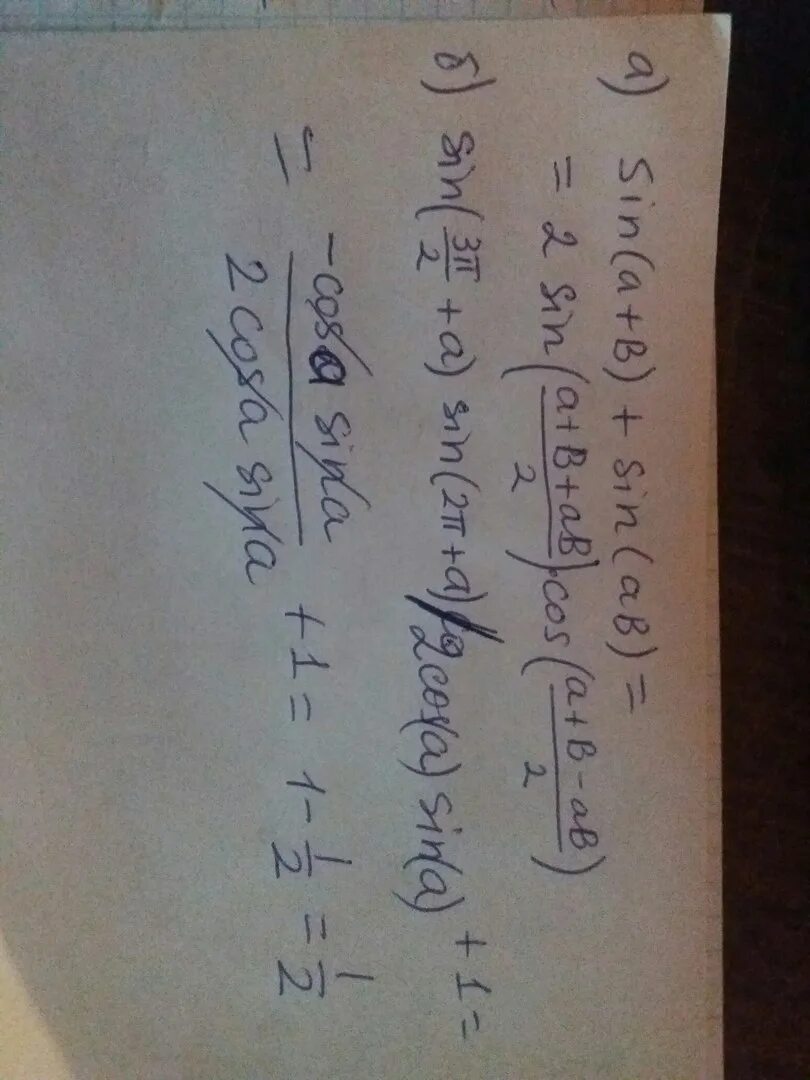 а) sin(a+B) + sin(aB) =
= 2 sin(a+B+aB/2)·cos(a+B-aB/2)
б) sin(3π/2 + a) sin(2π+a) / 2cos(a) sin(a) + 1 =
= -cos a sin a / 2 cos a sin a + 1 = 1 - 1/2 = 1/2